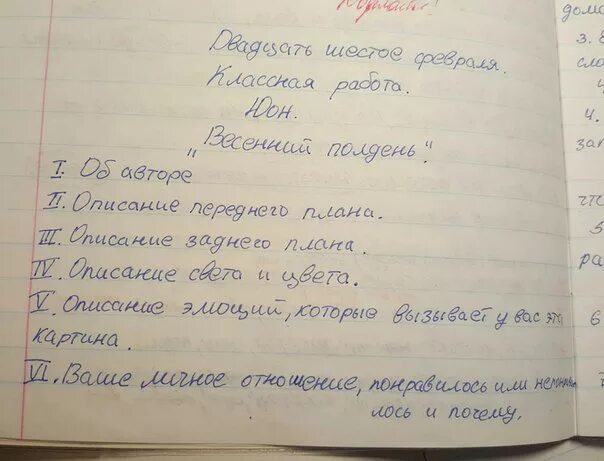 Двадцать шестое февраля.
Классная работа.
Юон.
"Весенний полдень".
I. Об авторе
II. Описание переднего плана.
III. Описание заднего плана.
IV. Описание света и цвета.
V. Описание эмоций, которые вызывает у вас эта
картина.
VI. Ваше личное отношение, понравилось или
лось и почему.
дома
3.
сло
4.
зап
что
5
ра
6